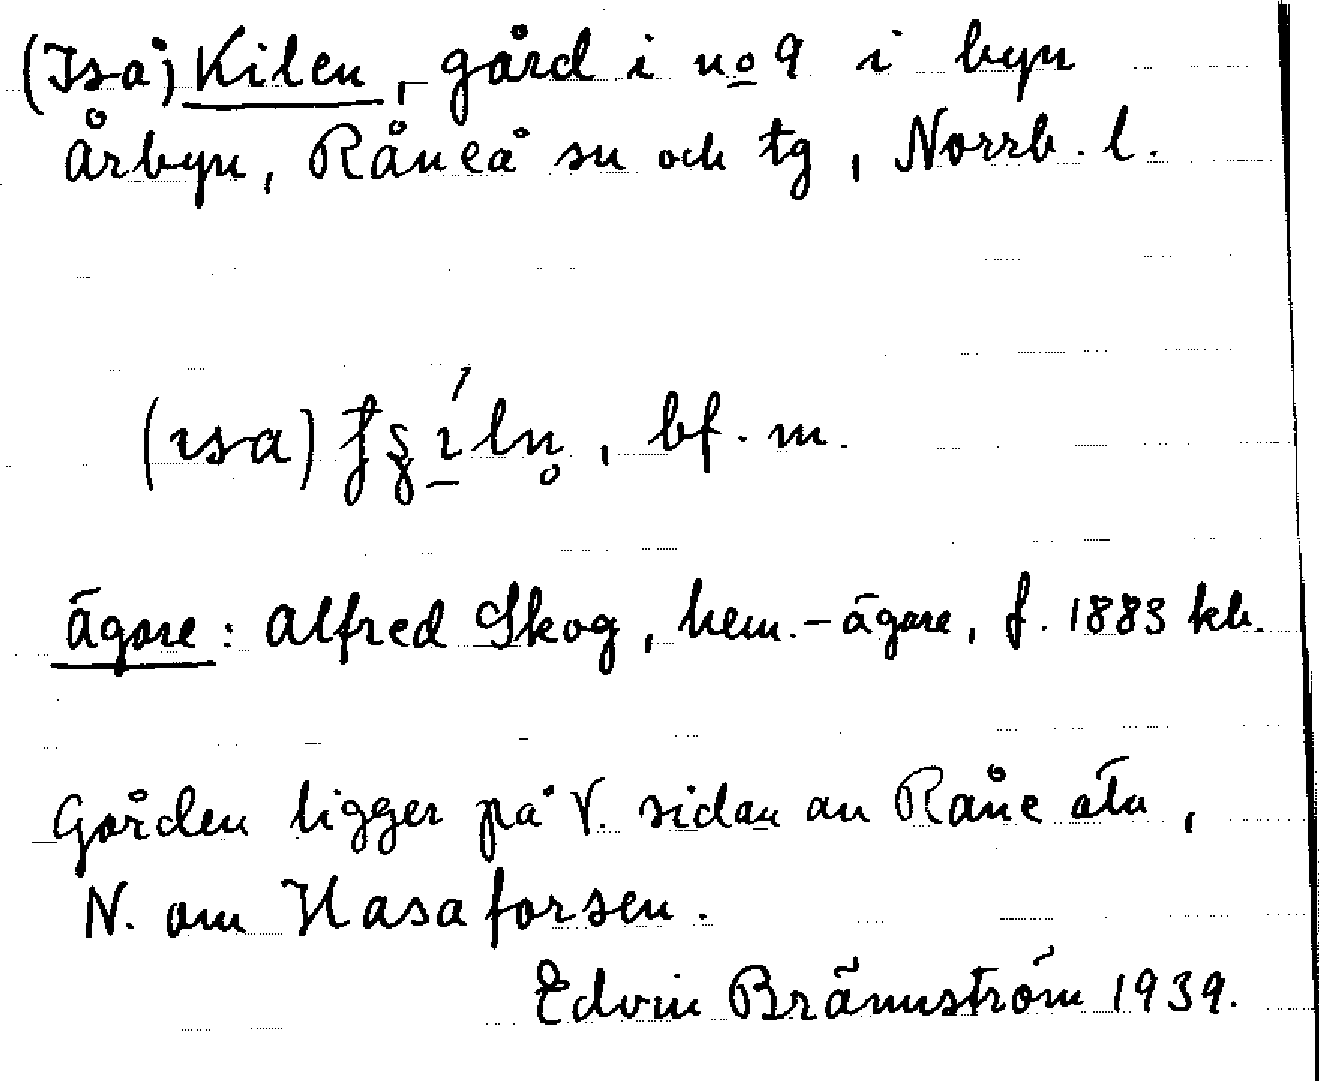 (Isa) Kilen, gård i no 9 i byn
Årbyn, Råneå sn och tg, Norrb. l.
(ısa) , bf. m.
Ägare: Alfred Skog, hem.-ägare, f. 1883 kb.
Gården ligger på V. sidan av Råne älv,
N. om Hasaforsen.
Edvin Brännström 1939.